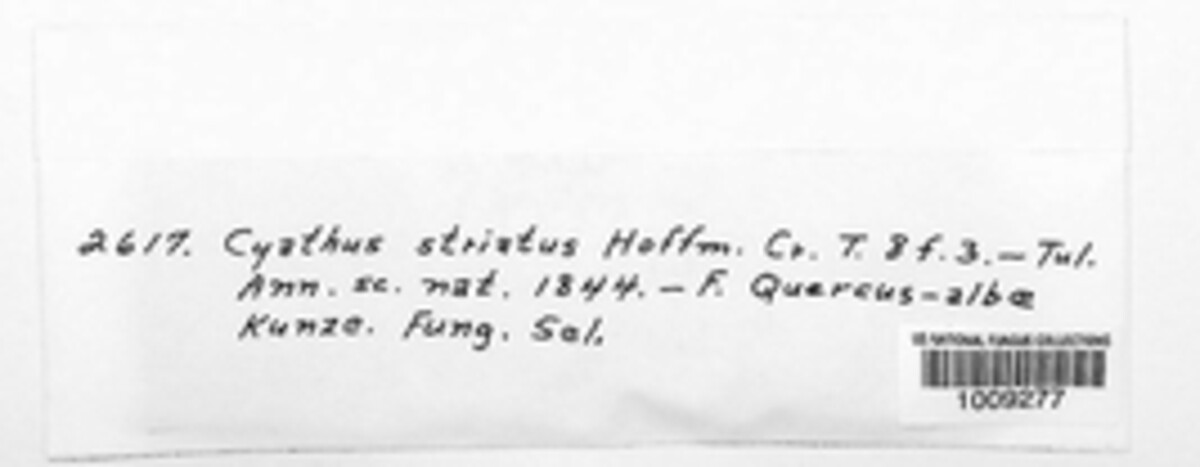 2617. Cyathus striatus Hoffm. Cr. T. 8 f. 3. — Tul.
Ann. sc. nat. 1844. — F. Quercus-albæ
Kunze. Fung. Sel.
US NATIONAL FUNGUS COLLECTIONS
1009277